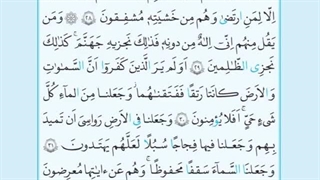 إِلَّا لِمَنِ ٱرْتَضَىٰ وَهُم مِّنْ خَشْيَتِهِۦ مُشْفِقُونَ ٢٨ ۞ وَمَن
يَقُلْ مِنْهُمْ إِنِّىٓ إِلَٰهٌ مِّن دُونِهِۦ فَذَٰلِكَ نَجْزِيهِ جَهَنَّمَ ۚ كَذَٰلِكَ
نَجْزِى ٱلظَّٰلِمِينَ ٢٩ أَوَلَمْ يَرَ ٱلَّذِينَ كَفَرُوٓا۟ أَنَّ ٱلسَّمَٰوَٰتِ
وَٱلْأَرْضَ كَانَتَا رَتْقًا فَفَتَقْنَٰهُمَا ۖ وَجَعَلْنَا مِنَ ٱلْمَآءِ كُلَّ
شَىْءٍ حَىٍّ ۖ أَفَلَا يُؤْمِنُونَ ٣٠ وَجَعَلْنَا فِى ٱلْأَرْضِ رَوَٰسِىَ أَن تَمِيدَ
بِهِمْ وَجَعَلْنَا فِيهَا فِجَاجًا سُبُلًا لَّعَلَّهُمْ يَهْتَدُونَ ٣١
وَجَعَلْنَا ٱلسَّمَآءَ سَقْفًا مَّحْفُوظًا ۖ وَهُمْ عَنْ ءَايَٰتِهَا مُعْرِضُونَ